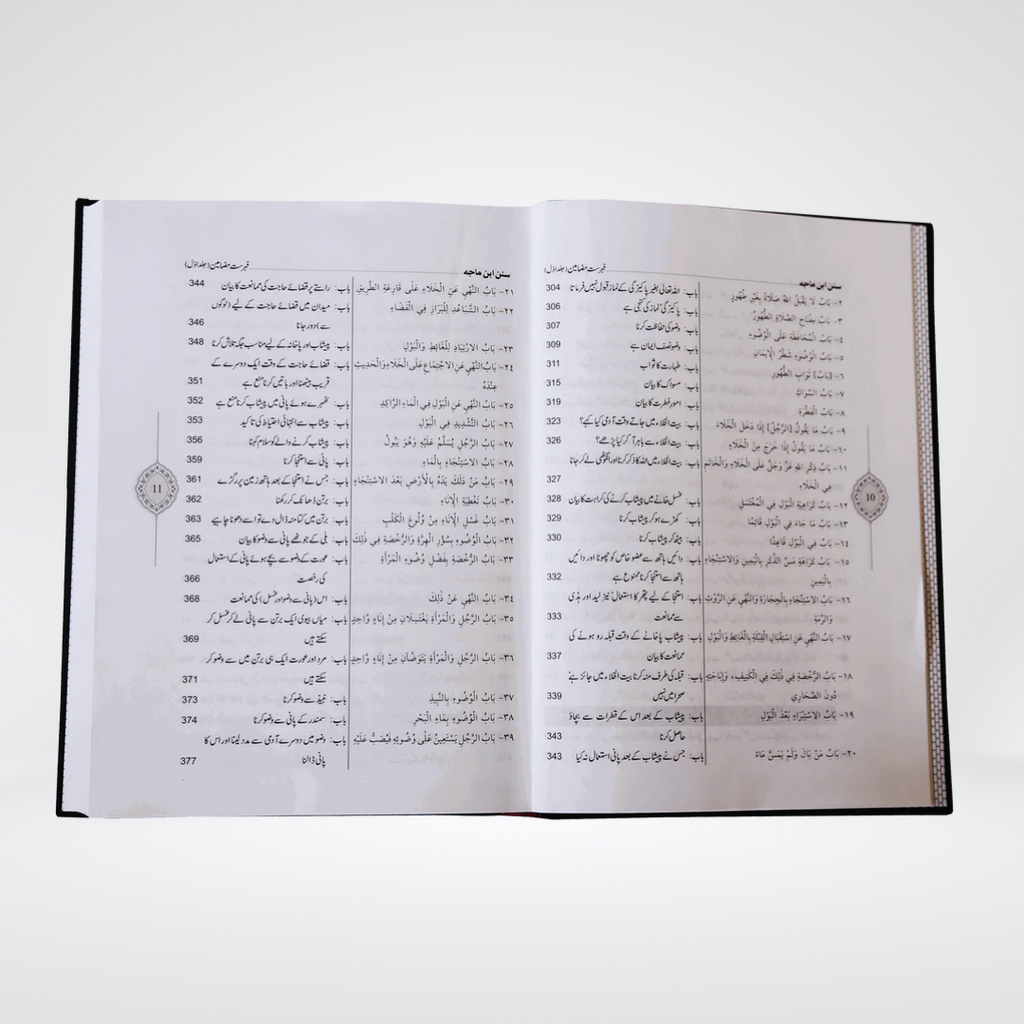 سنن ابن ماجه فہرست مضامین (جلد اوّل)
٢- بَابُ لَا يَقْبَلُ اللهُ صَلَاةً بِغَيْرِ طُهُورٍ باب: اللہ تعالیٰ بغیر پاکیزگی کے نماز قبول نہیں فرماتا 304
٣- بَابُ مِفْتَاحِ الصَّلَاةِ الطُّهُورُ باب: پاکیزگی نماز کی کنجی ہے 306
٤- بَابُ الْمُحَافَظَةِ عَلَى الْوُضُوءِ باب: وضو کی حفاظت کرنا 307
٥- بَابُ الْوُضُوءِ شَطْرُ الْإِيمَانِ باب: وضو نصف ایمان ہے 309
٦- [بَابُ] ثَوَابِ الطُّهُورِ باب: طہارت کا ثواب 311
٧- بَابُ السِّوَاكِ باب: مسواک کا بیان 315
٨- بَابُ الْفِطْرَةِ باب: امور فطرت کا بیان 319
٩- بَابُ مَا يَقُولُ [الرَّجُلُ] إِذَا دَخَلَ الْخَلَاءَ باب: بیت الخلاء میں جاتے وقت آدمی کیا کہے؟ 323
١٠- بَابُ مَا يَقُولُ إِذَا خَرَجَ مِنَ الْخَلَاءِ باب: بیت الخلاء سے باہر آ کر کیا پڑھے؟ 326
١١- بَابُ ذِكْرِ اللهِ عَزَّ وَجَلَّ عَلَى الْخَلَاءِ وَالْخَاتَمِ باب: بیت الخلاء میں اللہ کا ذکر کرنا اور انگوٹھی لے کر جانا
فِي الْخَلَاءِ 327
١٢- بَابُ كَرَاهِيَةِ الْبَوْلِ فِي الْمُغْتَسَلِ باب: غسل خانے میں پیشاب کرنے کی کراہت کا بیان 328
١٣- بَابُ مَا جَاءَ فِي الْبَوْلِ قَائِمًا باب: کھڑے ہو کر پیشاب کرنا 329
١٤- بَابٌ فِي الْبَوْلِ قَاعِدًا باب: بیٹھ کر پیشاب کرنا 330
١٥- بَابُ كَرَاهَةِ مَسِّ الذَّكَرِ بِالْيَمِينِ وَالِاسْتِنْجَاءِ باب: دائیں ہاتھ سے عضو خاص کو چھونا اور دائیں
بِالْيَمِينِ ہاتھ سے استنجا کرنا ممنوع ہے 332
١٦- بَابُ الِاسْتِنْجَاءِ بِالْحِجَارَةِ وَالنَّهْيِ عَنِ الرَّوْثِ باب: استنجا کے لیے پتھر کا استعمال نیز لید اور ہڈی
وَالرِّمَّةِ سے ممانعت 333
١٧- بَابُ النَّهْيِ عَنِ اسْتِقْبَالِ الْقِبْلَةِ بِالْغَائِطِ وَالْبَوْلِ باب: پیشاب پاخانے کے وقت قبلہ رو ہونے کی
ممانعت کا بیان 337
١٨- بَابُ الرُّخْصَةِ فِي ذَلِكَ فِي الْكَنِيفِ، وَإِبَاحَتِهِ باب: قبلہ کی طرف منہ کرنا بیت الخلاء میں جائز ہے
دُونَ الصَّحَارِي صحرا میں نہیں 339
١٩- بَابُ الِاسْتِبْرَاءِ بَعْدَ الْبَوْلِ باب: پیشاب کے بعد اس کے قطرات سے بچاؤ
حاصل کرنا 343
٢٠- بَابُ مَنْ بَالَ وَلَمْ يَمَسَّ مَاءً باب: جس نے پیشاب کے بعد پانی استعمال نہ کیا 343
10
سنن ابن ماجه فہرست مضامین (جلد اوّل)
٢١- بَابُ النَّهْيِ عَنِ الْخَلَاءِ عَلَى قَارِعَةِ الطَّرِيقِ باب: راستے پر قضائے حاجت کی ممانعت کا بیان 344
٢٢- بَابُ التَّبَاعُدِ لِلْبَرَازِ فِي الْفَضَاءِ باب: میدان میں قضائے حاجت کے لیے (لوگوں
سے) دور جانا 346
٢٣- بَابُ الِارْتِيَادِ لِلْغَائِطِ وَالْبَوْلِ باب: پیشاب اور پاخانہ کے لیے مناسب جگہ تلاش کرنا 348
٢٤- بَابُ النَّهْيِ عَنِ الِاجْتِمَاعِ عَلَى الْخَلَاءِ وَالْحَدِيثِ باب: قضائے حاجت کے وقت ایک دوسرے کے
عِنْدَهُ قریب بیٹھنا اور باتیں کرنا منع ہے 351
٢٥- بَابُ النَّهْيِ عَنِ الْبَوْلِ فِي الْمَاءِ الرَّاكِدِ باب: ٹھہرے ہوئے پانی میں پیشاب کرنا منع ہے 352
٢٦- بَابُ التَّشْدِيدِ فِي الْبَوْلِ باب: پیشاب سے انتہائی احتیاط کی تاکید 353
٢٧- بَابُ الرَّجُلِ يُسَلَّمُ عَلَيْهِ وَهُوَ يَبُولُ باب: پیشاب کرنے والے کو سلام کہنا 356
٢٨- بَابُ الِاسْتِنْجَاءِ بِالْمَاءِ باب: پانی سے استنجا کرنا 359
٢٩- بَابُ مَنْ دَلَكَ يَدَهُ بِالْأَرْضِ بَعْدَ الِاسْتِنْجَاءِ باب: جس نے استنجا کے بعد ہاتھ زمین پر رگڑے 361
٣٠- بَابُ تَغْطِيَةِ الْإِنَاءِ باب: برتن ڈھانک کر رکھنا 362
٣١- بَابُ غَسْلِ الْإِنَاءِ مِنْ وُلُوغِ الْكَلْبِ باب: برتن میں کتا منہ ڈال دے تو اسے دھونا چاہیے 363
٣٢- بَابُ الْوُضُوءِ بِسُؤْرِ الْهِرَّةِ وَالرُّخْصَةِ فِي ذَلِكَ باب: بلی کے جوٹھے پانی سے وضو کا بیان 365
٣٣- بَابُ الرُّخْصَةِ بِفَضْلِ وُضُوءِ الْمَرْأَةِ باب: عورت کے وضو سے بچے ہوئے پانی کے استعمال
کی رخصت 366
٣٤- بَابُ النَّهْيِ عَنْ ذَلِكَ باب: اس (پانی سے وضو اور غسل) کی ممانعت 368
٣٥- بَابُ الرَّجُلِ وَالْمَرْأَةِ يَغْتَسِلَانِ مِنْ إِنَاءٍ وَّاحِدٍ باب: میاں بیوی ایک برتن سے پانی لے کر غسل کر
سکتے ہیں 369
٣٦- بَابُ الرَّجُلِ وَالْمَرْأَةِ يَتَوَضَّآنِ مِنْ إِنَاءٍ وَّاحِدٍ باب: مرد اور عورت ایک ہی برتن میں سے وضو کر
سکتے ہیں 371
٣٧- بَابُ الْوُضُوءِ بِالنَّبِيذِ باب: نبیذ سے وضو کرنا 373
٣٨- بَابُ الْوُضُوءِ بِمَاءِ الْبَحْرِ باب: سمندر کے پانی سے وضو کرنا 374
٣٩- بَابُ الرَّجُلِ يَسْتَعِينُ عَلَى وُضُوئِهِ فَيُصَبُّ عَلَيْهِ باب: وضو میں دوسرے آدمی سے مدد لینا اور اس کا
پانی ڈالنا 377
11